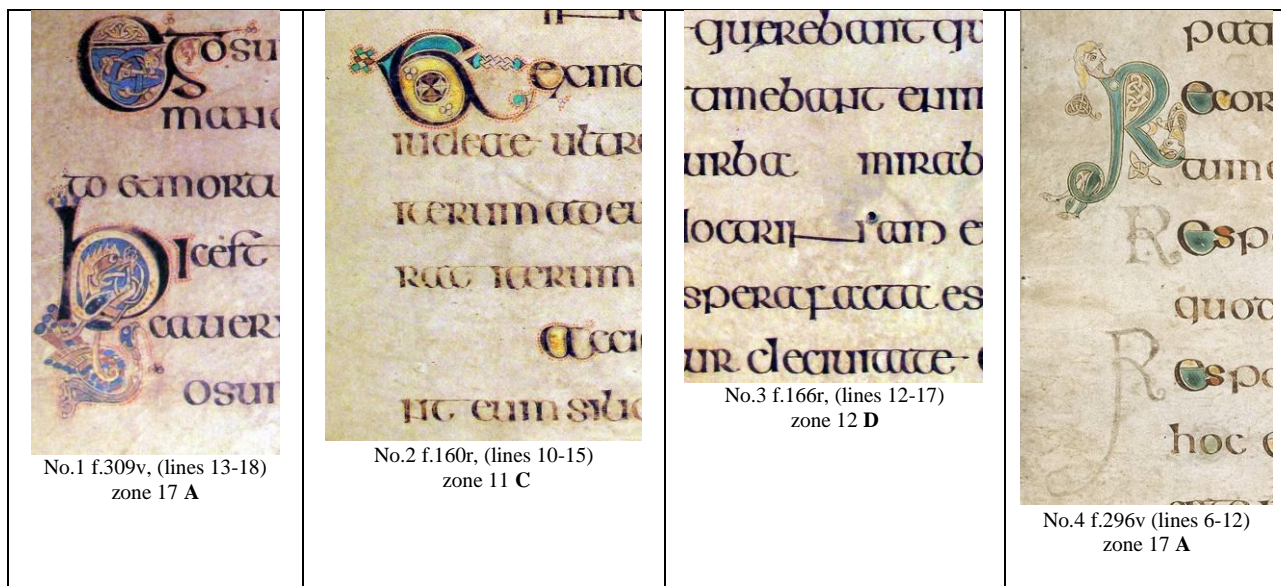 Egosu
mand
to &mortu
hicest
cauer
osum
No.1 f.309v, (lines 13-18)
zone 17 A
exind
iudeae ultr
iterum ad eu
rat iterum
nt eum silic
No.2 f.160r, (lines 10-15)
zone 11 C
querebant qu
timebant enim
urba mirab
am e
spera facta es
ur deciuitate
No.3 f.166r, (lines 12-17)
zone 12 D
pat
Recor
Resp
quod
Resp
hoc e
No.4 f.296v (lines 6-12)
zone 17 A